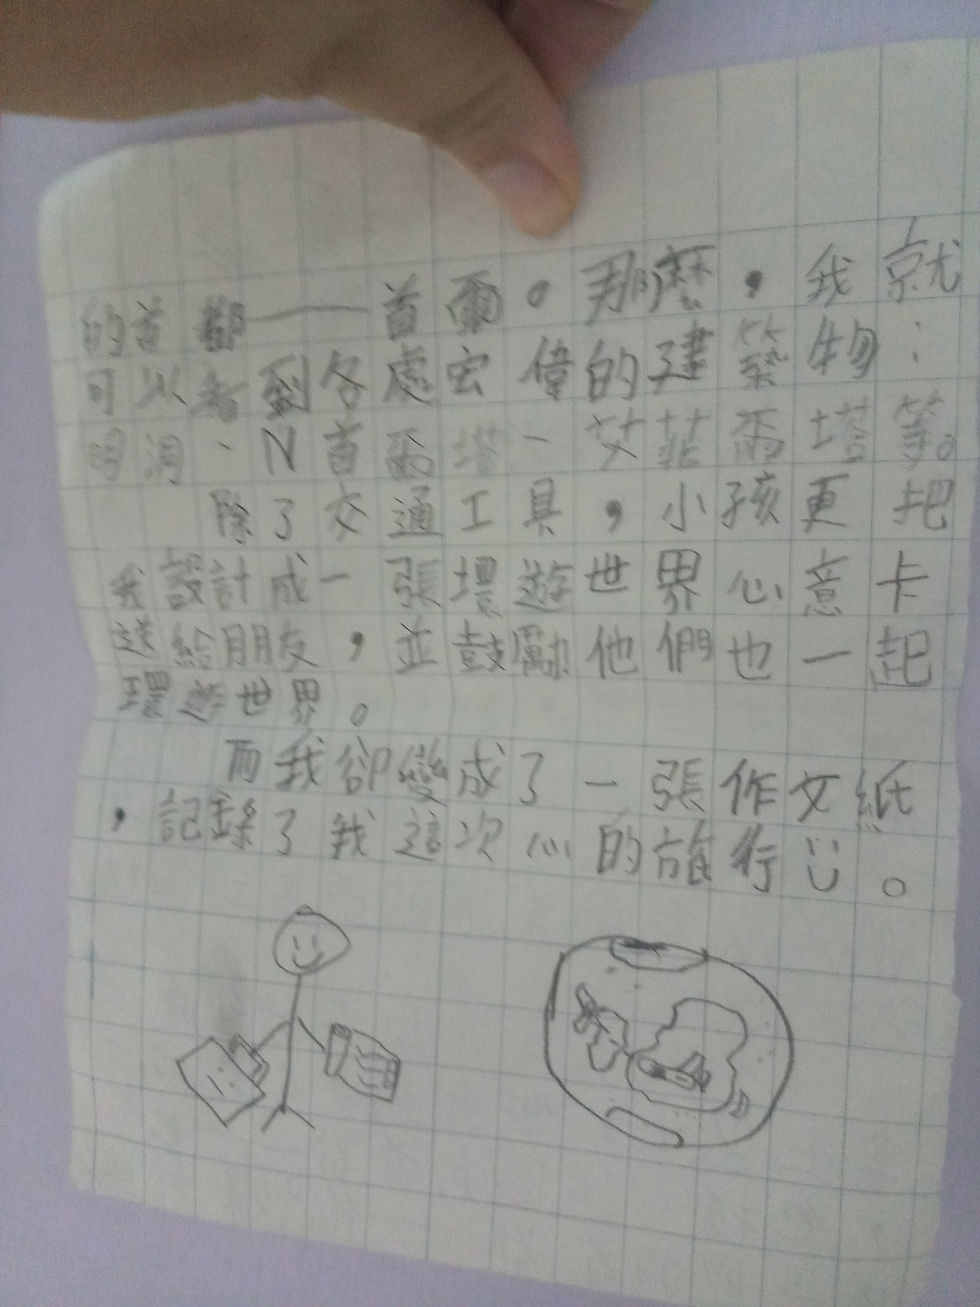 的首都——首爾。那麼，我就
可以看到各處宏偉的建築物：
明洞、N首爾塔、艾菲爾塔等。
除了交通工具，小孩更把
我設計成一張環遊世界心意卡
送給朋友，並鼓勵他們也一起
環遊世界。
而我卻變成了一張作文紙
，記錄了我這次心的旅行。